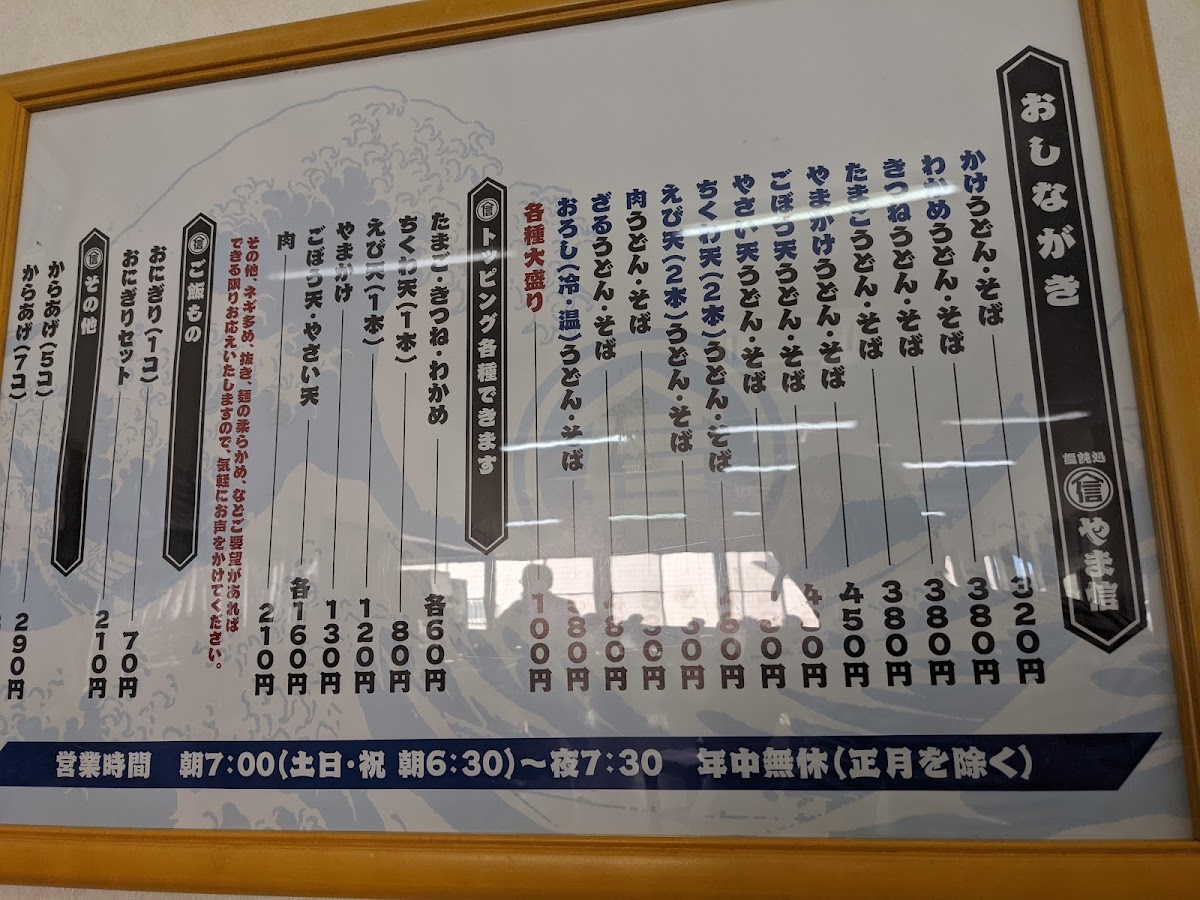 おしながき
饂飩処 信 やま信
かけうどん・そば 320円
わかめうどん・そば 380円
きつねうどん・そば 380円
たまごうどん・そば 380円
やまかけうどん・そば 450円
ごぼう天うどん・そば
やさい天うどん・そば
ちくわ天(2本)うどん・そば
えび天(2本)うどん・そば
肉うどん・そば
ざるうどん・そば
おろし(冷・温)うどん・そば
各種大盛り 100円
信 トッピング各種できます
たまご・きつね・わかめ 各60円
ちくわ天(1本) 80円
えび天(1本) 120円
やまかけ 130円
ごぼう天・やさい天 各160円
肉 210円
その他、ネギ多め、抜き、麺の柔らかめ、などご要望があれば
できる限りお応えいたしますので、気軽にお声をかけてください。
信 ご飯もの
おにぎり(1コ) 70円
おにぎりセット 210円
信 その他
からあげ(5コ) 290円
からあげ(7コ)
営業時間 朝7:00(土日・祝 朝6:30)〜夜7:30 年中無休(正月を除く)